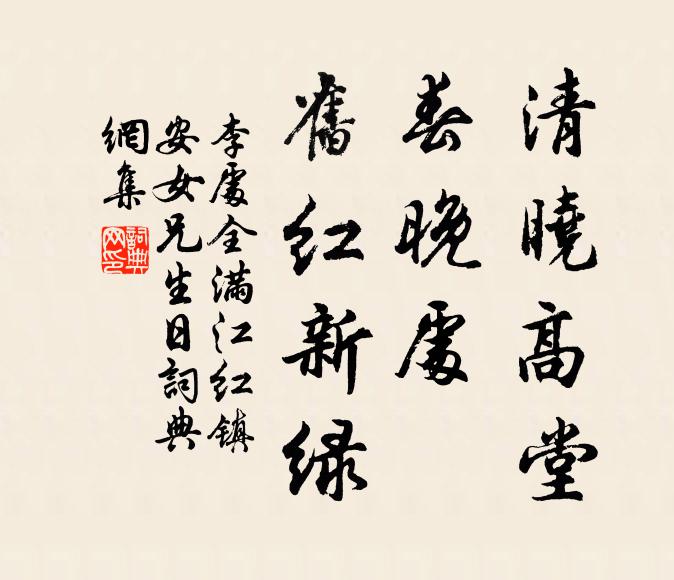 清曉高堂
春晚處
舊紅新綠
李處全滿江紅鎮
安女兄生日詞典
網集
詞典網印